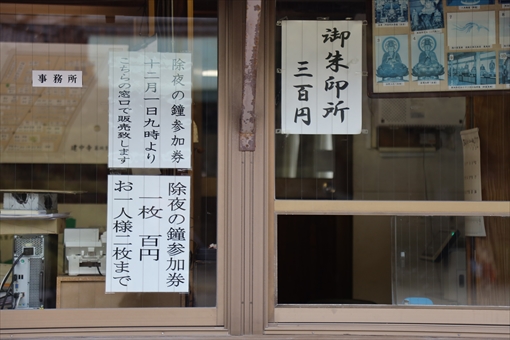 御朱印所
三百円
除夜の鐘参加券
十二月一日九時より
こちらの窓口で販売致します
除夜の鐘参加券
一枚 百円
お一人様二枚まで
事務所